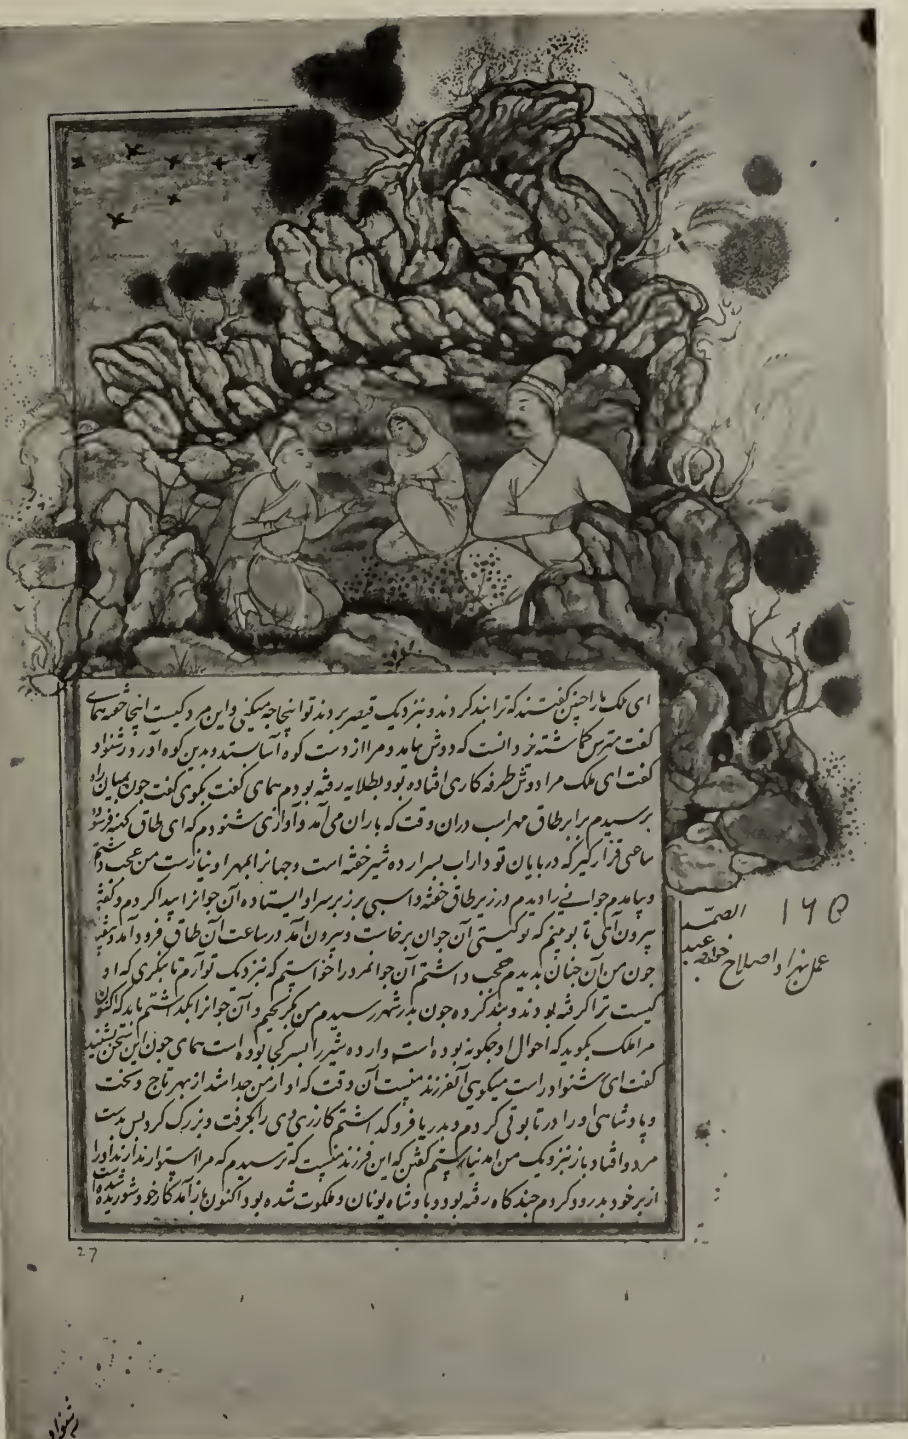 ای ملک ما را چنین گفتند که ترا بند کردند و نزدیک قیصر بردند تو اینجا چه میکنی و این مرد کیست اینجا خفته همای
کفت مترس که دوش مرا از دست کوه آسا بستد و بدین کوه آورد رشنواد
کفت ای ملک مرا دوش طرفه کاری افتاده بود بطلایه رفته بودم همای کفت بکوی کفت چون بمیان راه
برسیدم برابر طاق مهراب دران وقت که باران می آمد و آوازی شنودم که ای طاق کهنه فرسوده
ساعتی قرار گیر که در پایان تو داراب بسر ارده شیر خفته است و جهانرا بهر او نیازست من عجب داشتم
و بیامدم جوانی را دیدم در زیر طاق خفته و اسبی بر زبر سر او ایستاده آن جوانرا بیدار کردم و کفتم
بیرون آی تا ببینم که تو کیستی آن جوان برخاست و بیرون آمد در ساعت آن طاق فرود آمد
چون من آن چنان بدیدم عجب داشتم آن جوانمرد را خواستم که نزدیک تو آرم تا بنکری که او
کیست ترا کرفته بودند و بند کرده چون بدر شهر رسیدم من بکریختم و آن جوانرا بکذاشتم باید که اکنون
مرا ملک بکوید که احوال او چکونه بوده است و ارده شیر را بسر کجا بوده است همای چون این سخن بشنید
کفت ای رشنواد راست میکویی آن فرزند منست آن وقت که او از من جدا شد از بهر تاج و تخت
و پادشاهی او را در تابوتی کردم و بدریا فرو کذاشتم کازری وی را بکرفت و بزرک کرد پس بدست
مردو افتاد باز نزدیک من آمد نیارستم کفتن که این فرزند منست که ترسیدم که مرا استوار ندارند او را
از بر خود بدرود کردم چند کاه رفته بود و پادشاه یونان و ملکوت شده بود اکنون باز آمد کار خود شوریده
۱۶۵
عمل بهزاد اصلاح خواجه عبد
الصمد
27
رشنواد